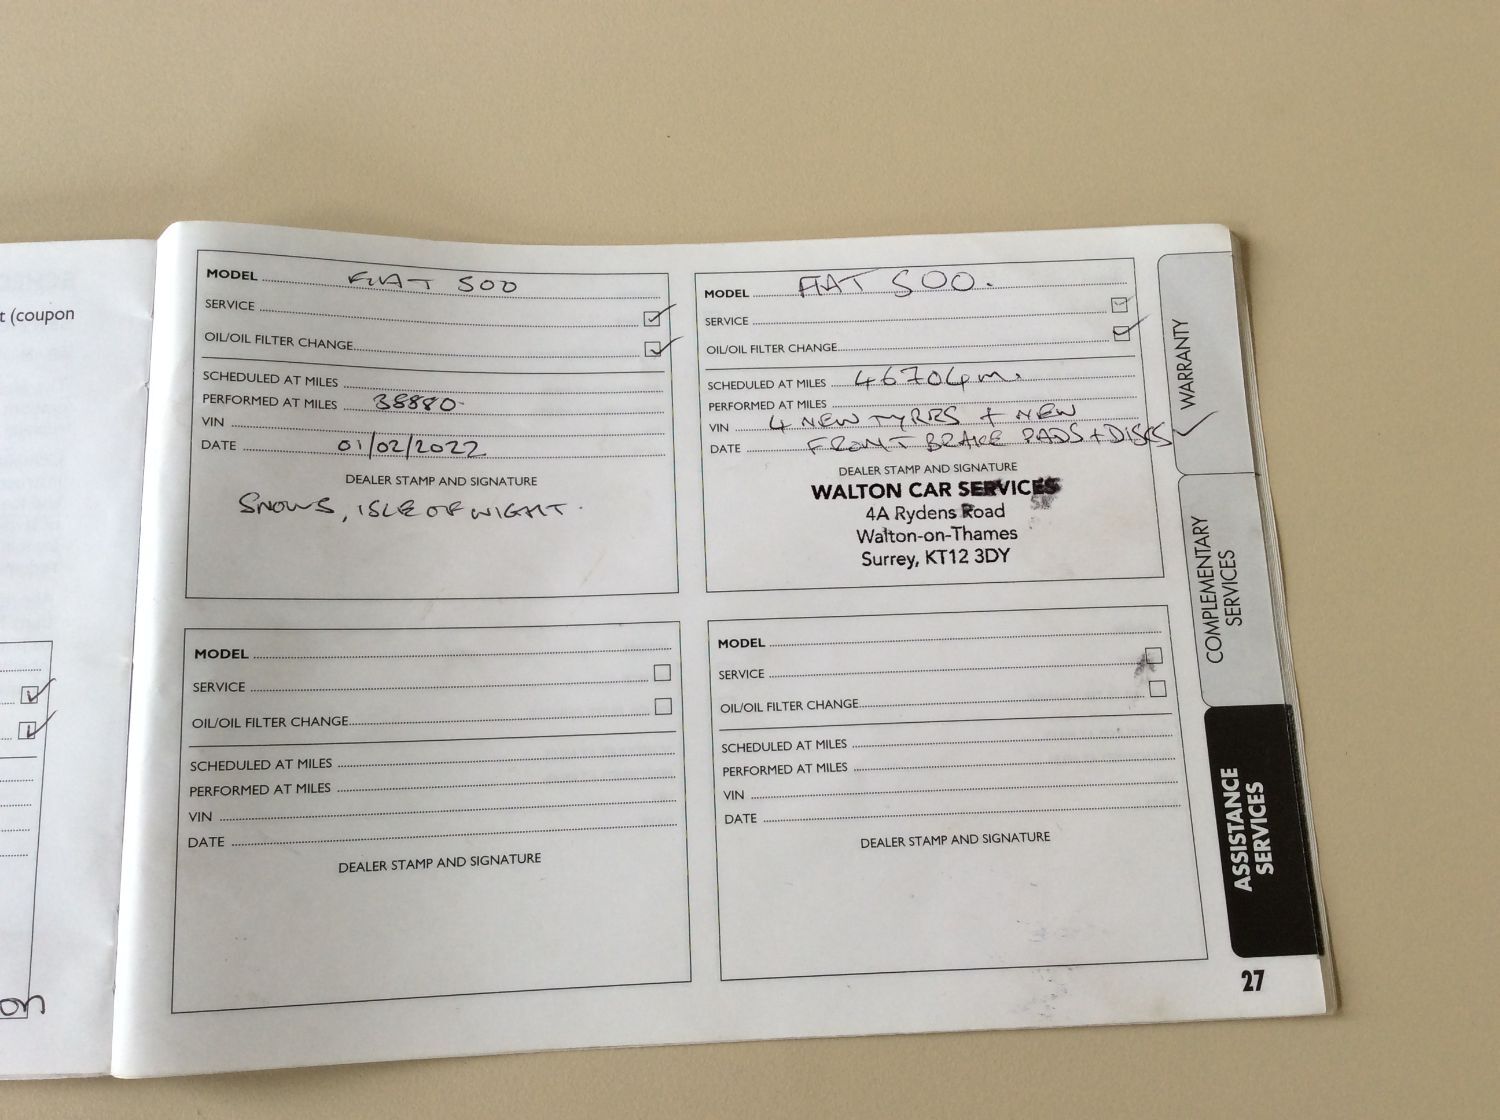 t (coupon
MODEL FIAT 500
SERVICE
OIL/OIL FILTER CHANGE
SCHEDULED AT MILES
PERFORMED AT MILES 38880
VIN
DATE 01/02/2022
DEALER STAMP AND SIGNATURE
SNOWS, ISLE OF WIGHT.
MODEL FIAT 500.
SERVICE
OIL/OIL FILTER CHANGE
SCHEDULED AT MILES 46704m.
PERFORMED AT MILES
VIN 4 NEW TYRES + NEW
DATE FRONT BRAKE PADS + DISCS
DEALER STAMP AND SIGNATURE
WALTON CAR SERVICES
4A Rydens Road
Walton-on-Thames
Surrey, KT12 3DY
MODEL
SERVICE
OIL/OIL FILTER CHANGE
SCHEDULED AT MILES
PERFORMED AT MILES
VIN
DATE
DEALER STAMP AND SIGNATURE
MODEL
SERVICE
OIL/OIL FILTER CHANGE
SCHEDULED AT MILES
PERFORMED AT MILES
VIN
DATE
DEALER STAMP AND SIGNATURE
WARRANTY
COMPLEMENTARY
SERVICES
ASSISTANCE
SERVICES
27